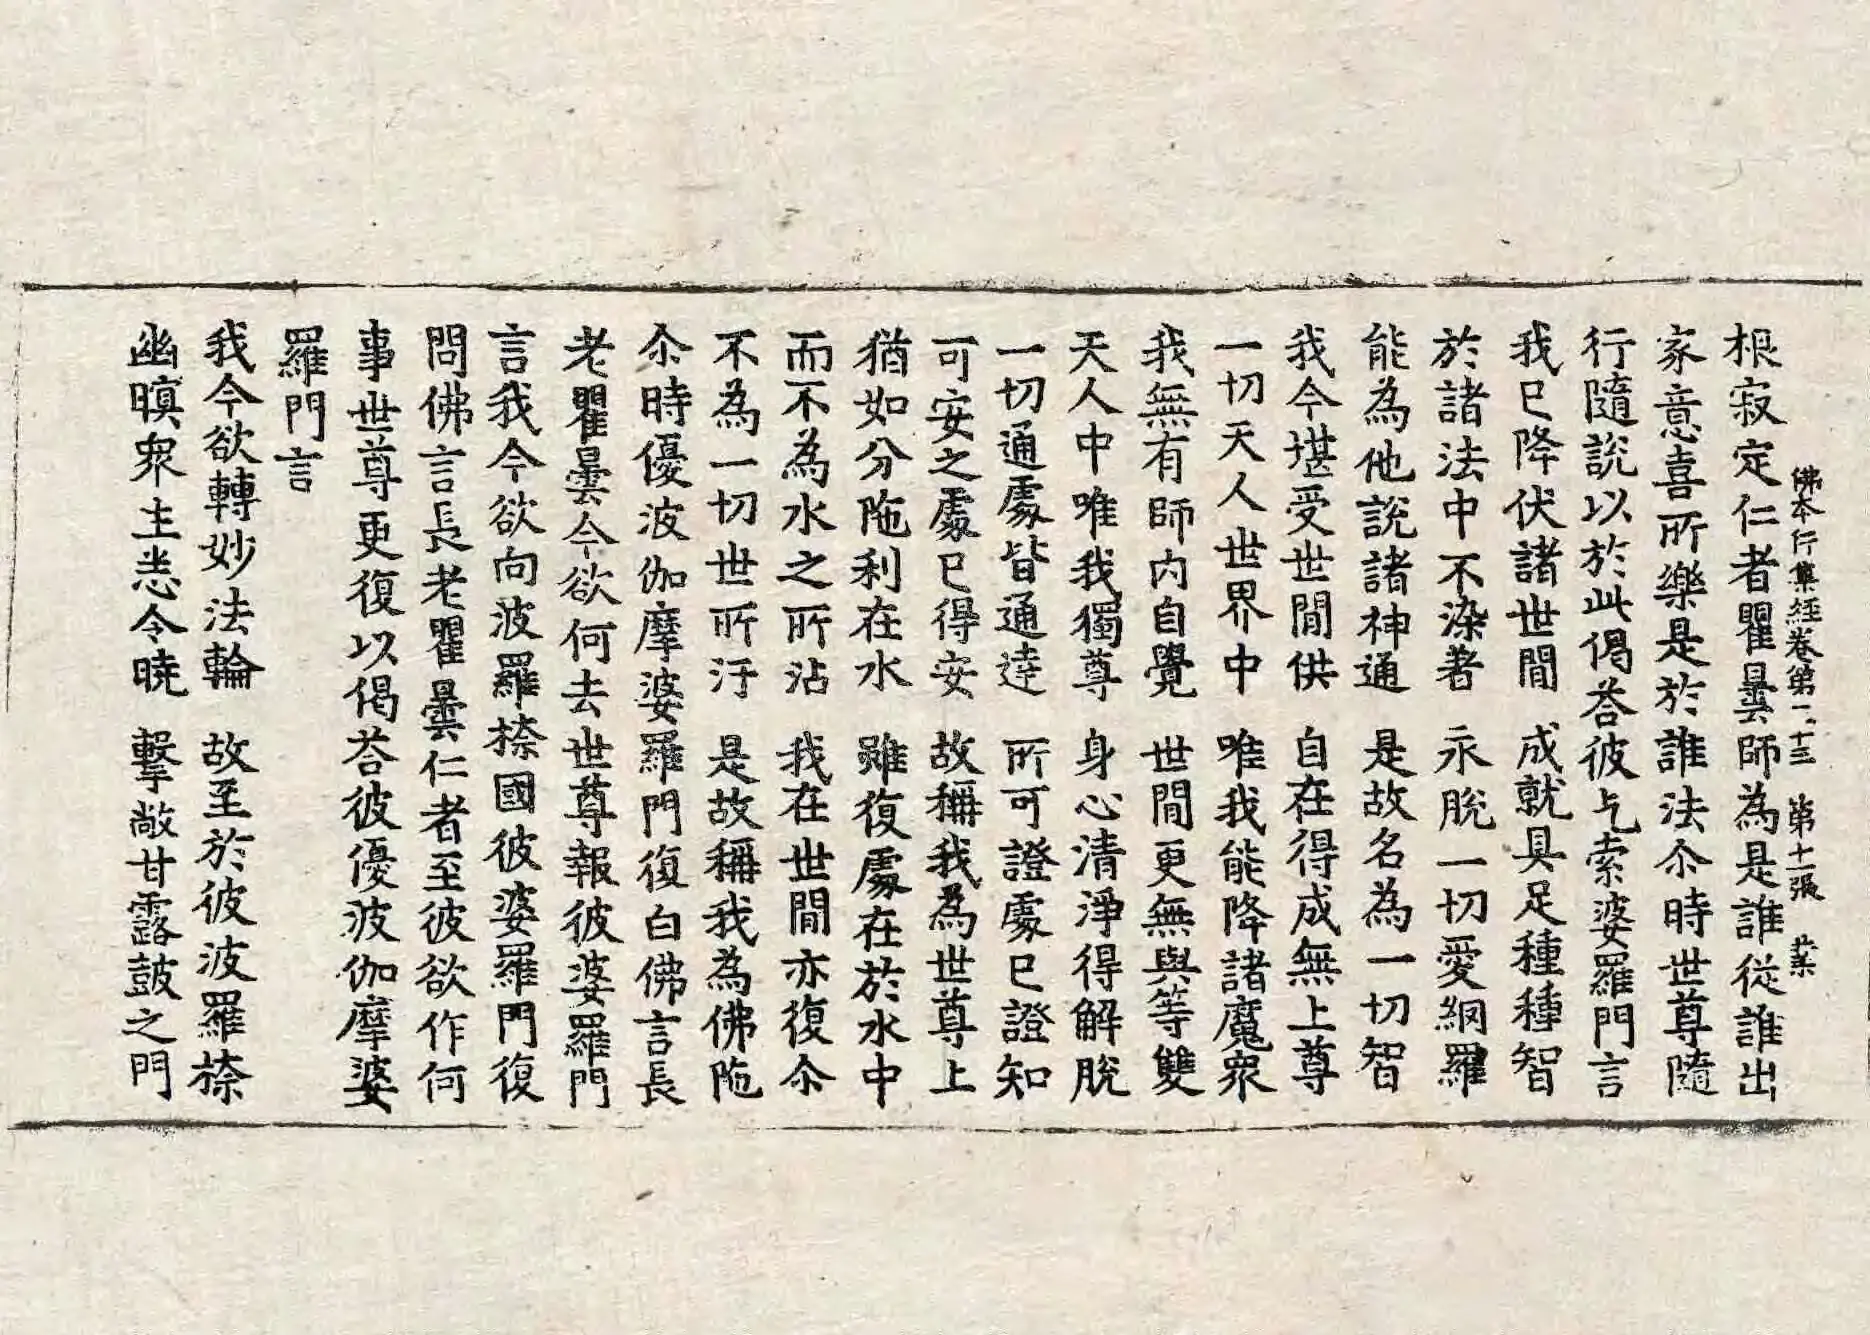 佛本行集經卷第三十三 第十一張 業
根寂定仁者瞿曇師為是誰從誰出
家意喜所樂是於誰法尒時世尊隨
行隨說以於此偈荅彼乞索婆羅門言
我已降伏諸世間 成就具足種種智
於諸法中不染著 永脫一切愛網羅
能為他說諸神通 是故名為一切智
我今堪受世間供 自在得成無上尊
一切天人世界中 唯我能降諸魔衆
我無有師內自覺 世間更無與等雙
天人中唯我獨尊 身心清淨得解脫
一切通處皆通達 所可證處已證知
可安之處已得安 故稱我為世尊上
猶如分陁利在水 雖復處在於水中
而不為水之所沾 我在世間亦復尒
不為一切世所汙 是故稱我為佛陁
尒時優波伽摩婆羅門復白佛言長
老瞿曇今欲何去世尊報彼婆羅門
言我今欲向波羅㮈國彼婆羅門復
問佛言長老瞿曇仁者至彼欲作何
事世尊更復以偈荅彼優波伽摩婆
羅門言
我今欲轉妙法輪 故至於彼波羅㮈
幽瞑衆生悉令曉 擊敞甘露鼓之門